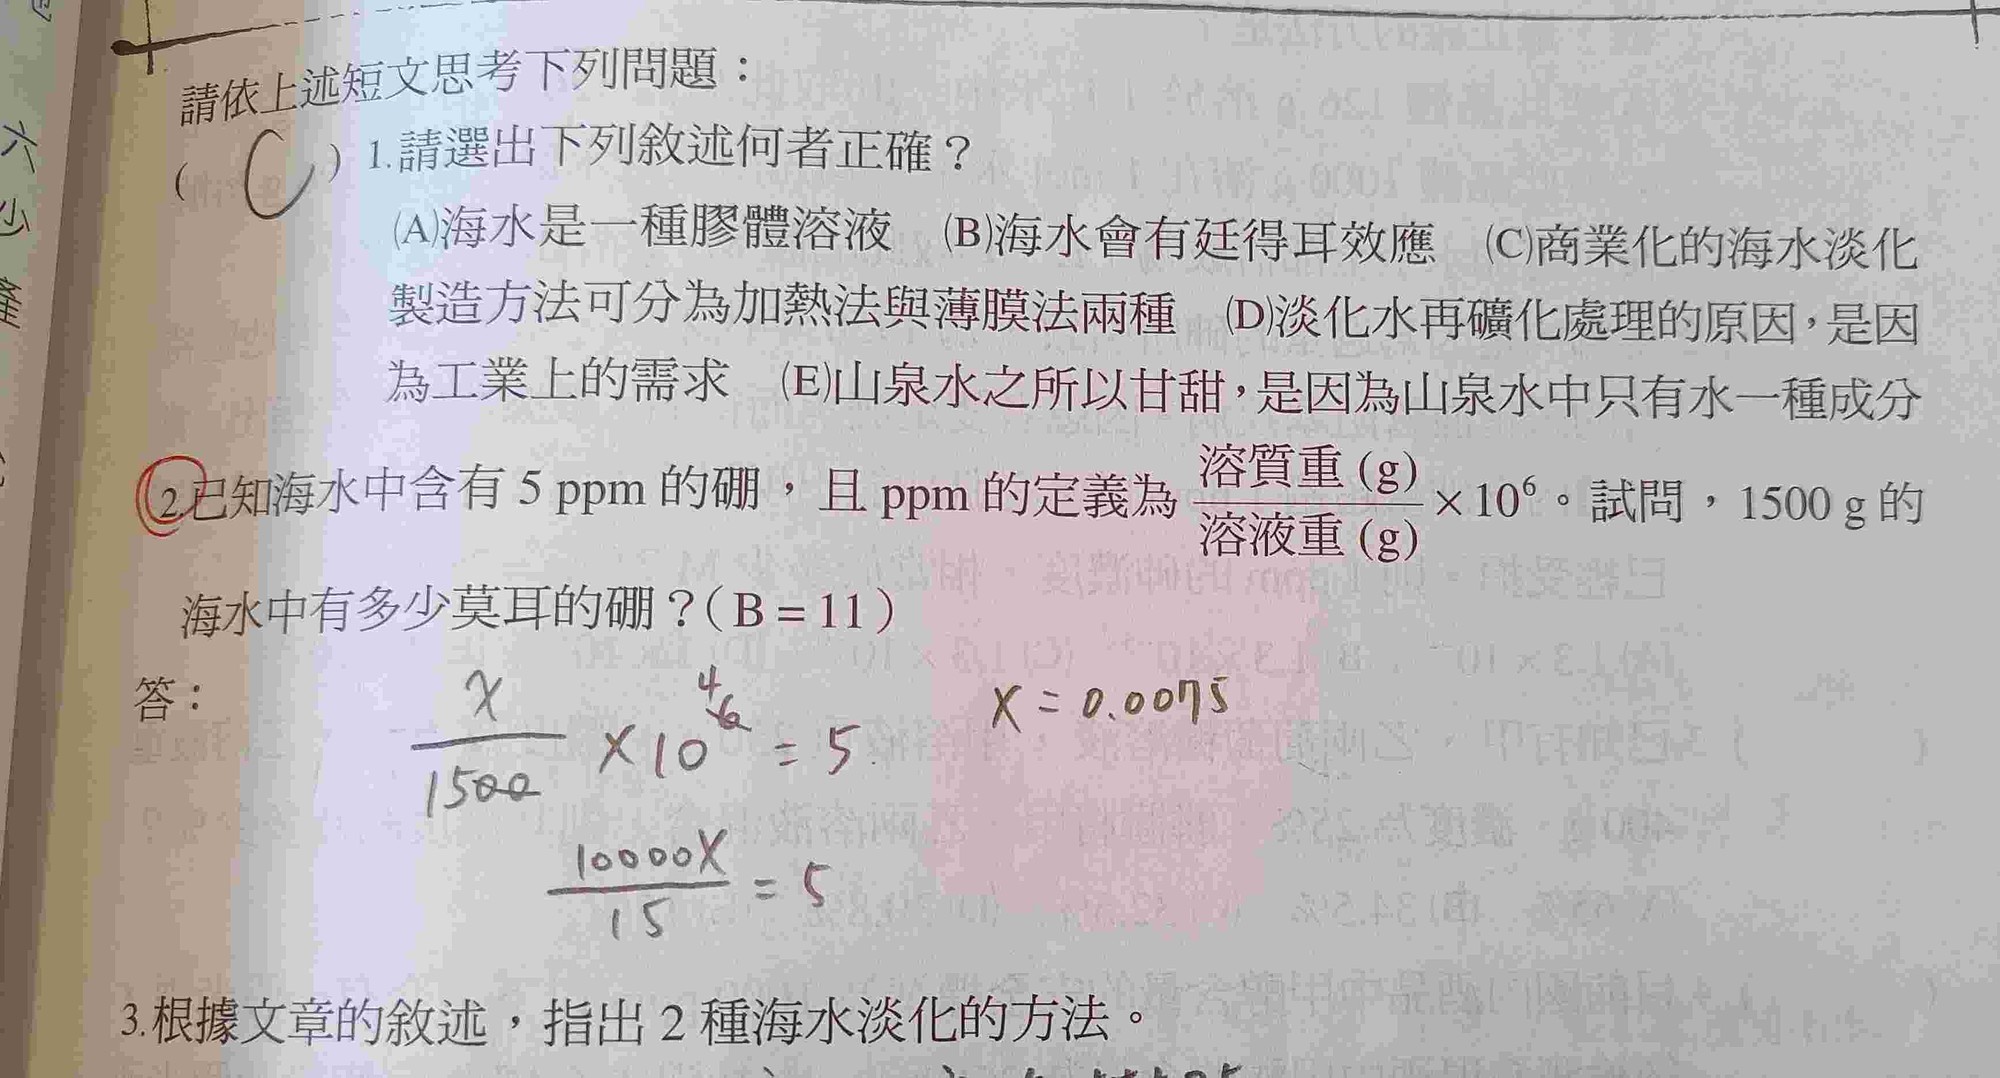 請依上述短文思考下列問題：
( C ) 1.請選出下列敘述何者正確？
(A)海水是一種膠體溶液 (B)海水會有廷得耳效應 (C)商業化的海水淡化
製造方法可分為加熱法與薄膜法兩種 (D)淡化水再礦化處理的原因，是因
為工業上的需求 (E)山泉水之所以甘甜，是因為山泉水中只有水一種成分
2.已知海水中含有 5 ppm 的硼，且 ppm 的定義為 溶質重 (g) / 溶液重 (g) × 10⁶。試問，1500 g 的
海水中有多少莫耳的硼？( B = 11 )
答：
x / 1500 × 10⁴ = 5
x = 0.0075
10000x / 15 = 5
3.根據文章的敘述，指出 2 種海水淡化的方法。